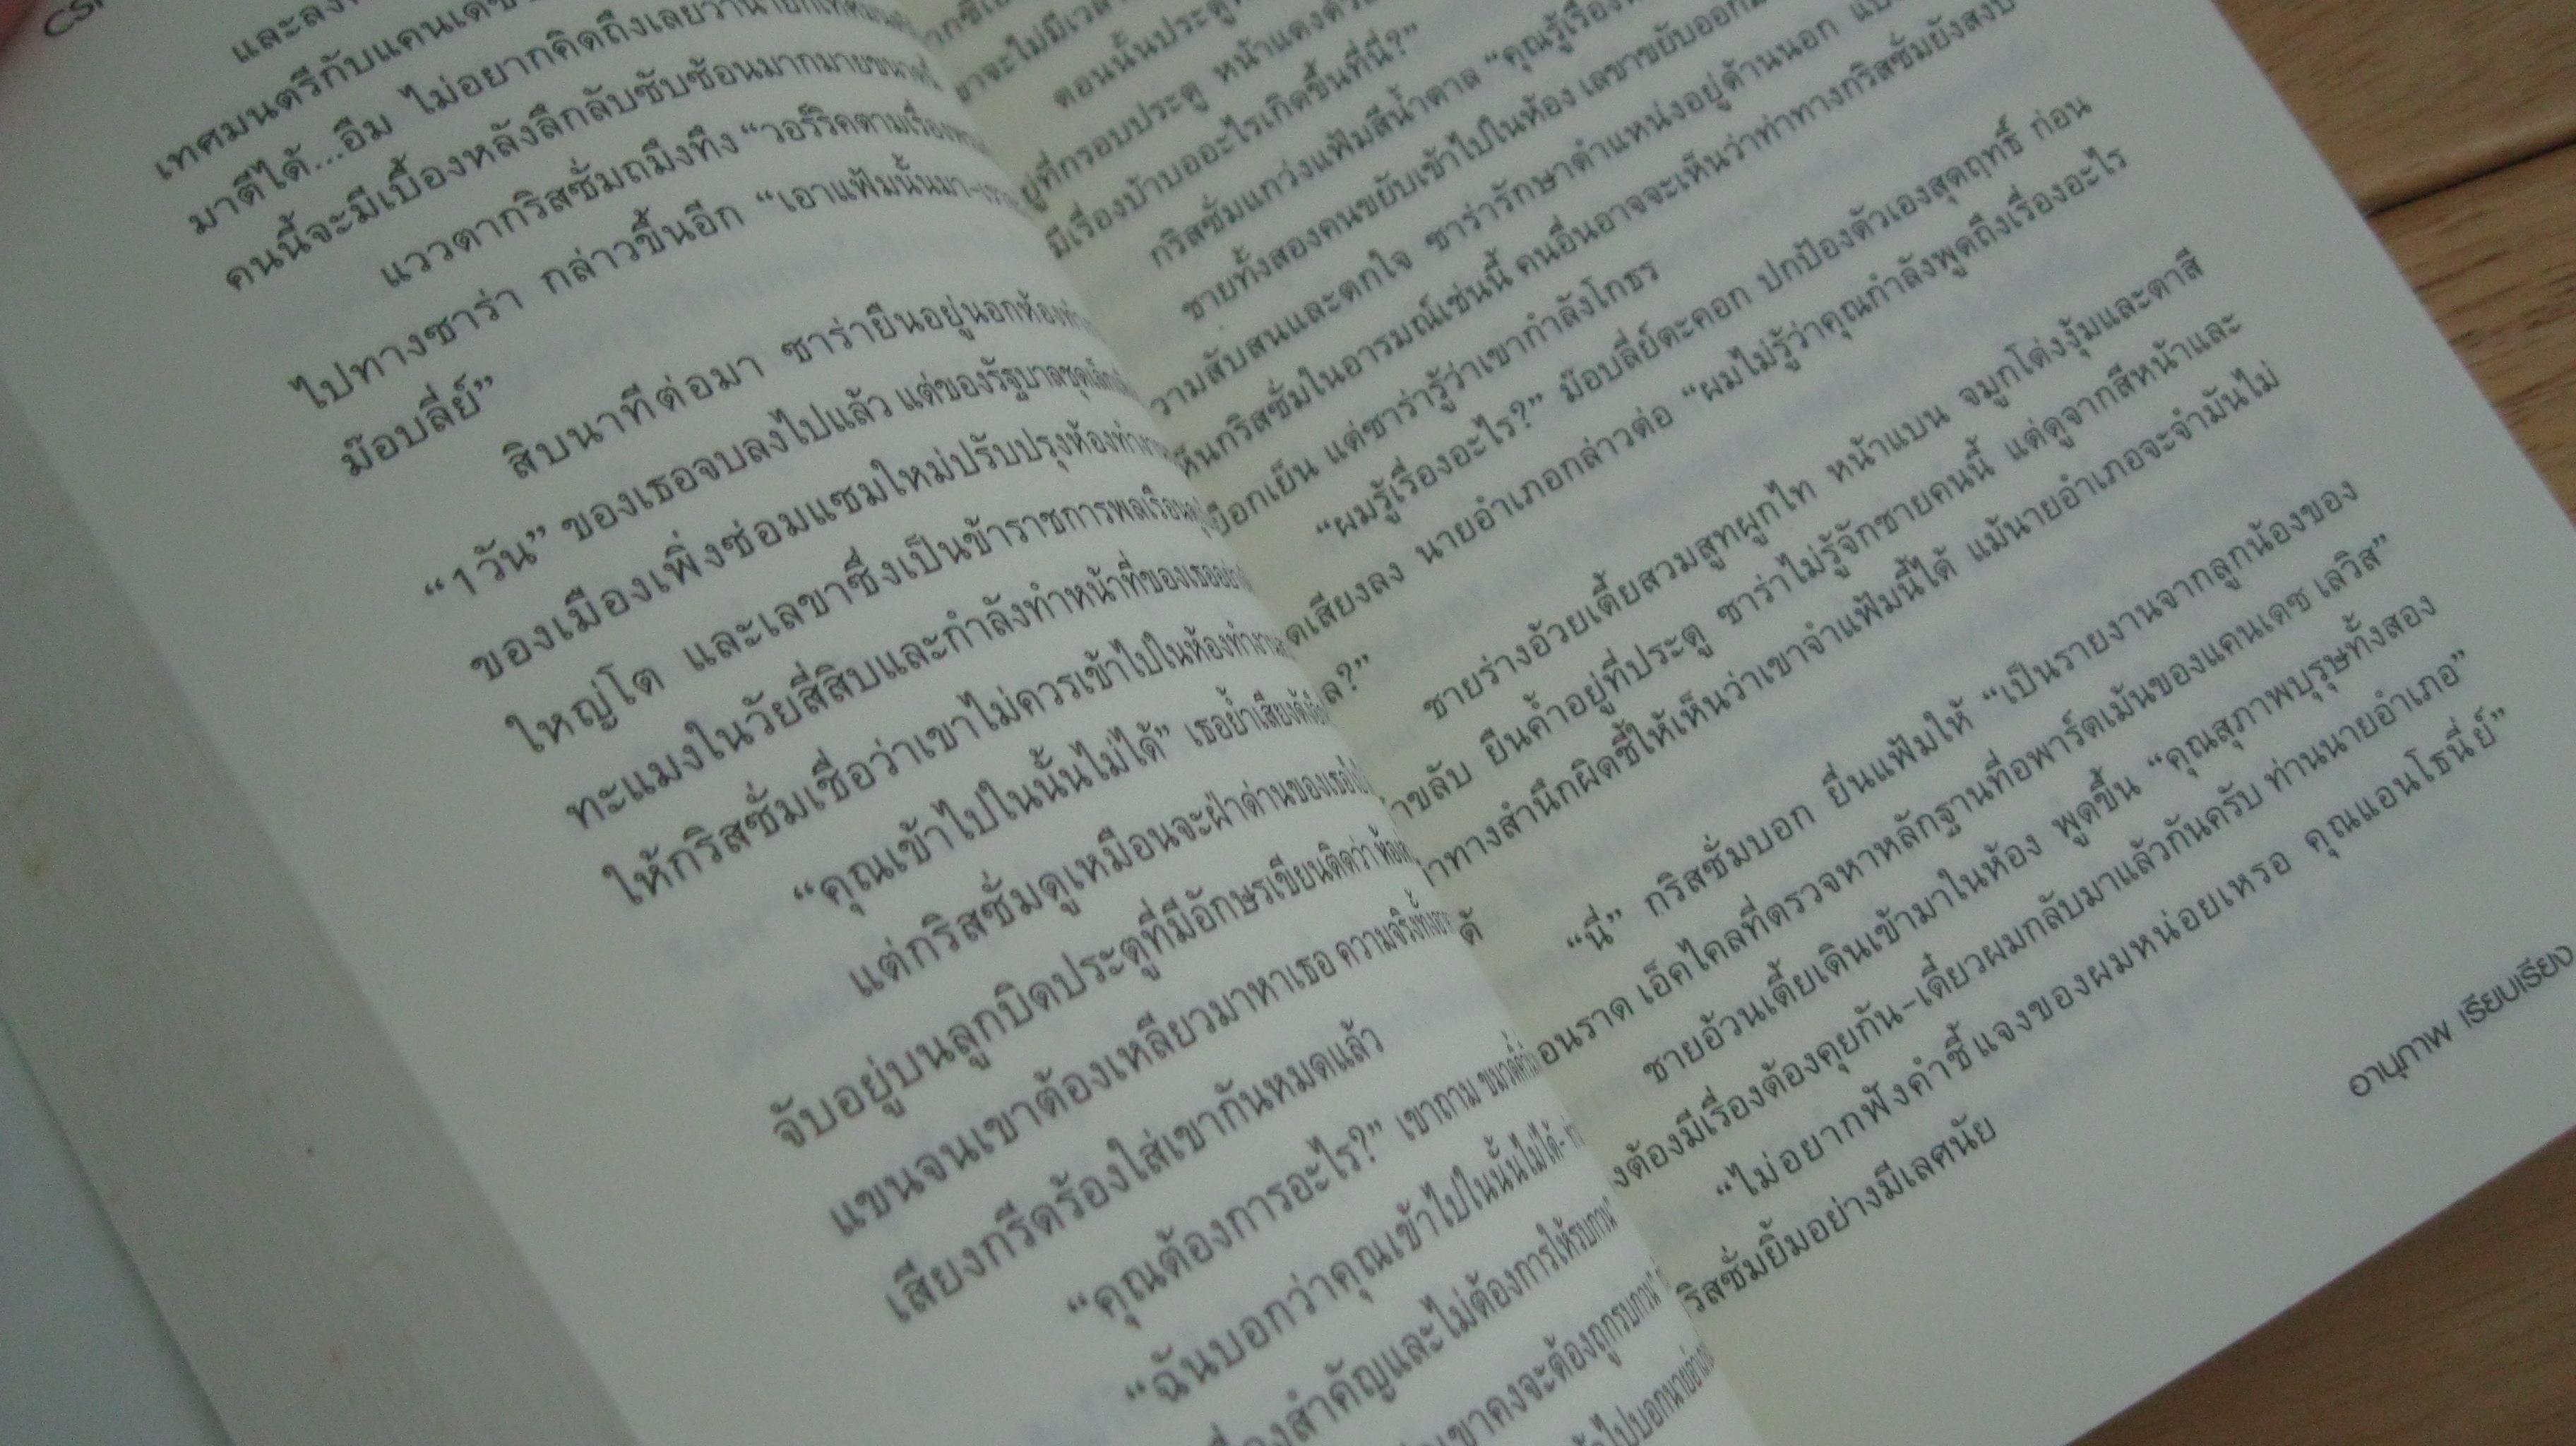 CSI
และลง
เทศมนตรีกับแคนเดซ
มาตีได้...อืม ไม่อยากคิดถึงเลยว่านายกเทศมนตรี
คนนี้จะมีเบื้องหลังลึกลับซับซ้อนมากมายขนาดนี้
แววตากริสซั่มถมึงทึง “วอร์ริคตามเรื่อง
ไปทางซาร่า กล่าวขึ้นอีก “เอาแฟ้มนั้นมา-เรา
ม๊อบลี่ย์”
สิบนาทีต่อมา ซาร่ายืนอยู่นอกห้องทำ
“1 วัน” ของเธอจบลงไปแล้ว แต่ของรัฐบาล
ของเมืองเพิ่งซ่อมแซมใหม่ปรับปรุงห้องทำงาน
ใหญ่โต และเลขาซึ่งเป็นข้าราชการพลเรือน
ทะแมงในวัยสี่สิบและกำลังทำหน้าที่ของเธออย่าง
ให้กริสซั่มเชื่อว่าเขาไม่ควรเข้าไปในห้องทำงาน
“คุณเข้าไปในนั้นไม่ได้” เธอย้ำเสียง
แต่กริสซั่มดูเหมือนจะฝ่าด่านของเธอไป
จับอยู่บนลูกบิดประตูที่มีอักษรเขียนติดว่า ห้อง
แขนจนเขาต้องเหลียวมาหาเธอ ความจริง
เสียงกรีดร้องใส่เขากันหมดแล้ว
“คุณต้องการอะไร?” เขาถาม ขมวดคิ้ว
“ฉันบอกว่าคุณเข้าไปในนั้นไม่ได้-
องสำคัญและไม่ต้องการให้รบกวน
เขาคงจะต้องถูกรบกวน
ไปบอกนายอำเภอ
าจะไม่มีเวลา
ตอนนั้นประตู
ยู่ที่กรอบประตู หน้าแดงด้วย
มีเรื่องบ้าบออะไรเกิดขึ้นที่นี่?”
กริสซั่มแกว่งแฟ้มสีน้ำตาล “คุณรู้เรื่อง
ชายทั้งสองคนขยับเข้าไปในห้อง เลขาขยับออก
วามสับสนและตกใจ ซาร่ารักษาตำแหน่งอยู่ด้านนอก
ห็นกริสซั่มในอารมณ์เช่นนี้ คนอื่นอาจจะเห็นว่าท่าทางกริสซั่มยังสงบ
ยือกเย็น แต่ซาร่ารู้ว่าเขากำลังโกธร
“ผมรู้เรื่องอะไร?” ม๊อบลี่ย์ตะคอก ปกป้องตัวเองสุดฤทธิ์ ก่อน
ดเสียงลง นายอำเภอกล่าวต่อ “ผมไม่รู้ว่าคุณกำลังพูดถึงเรื่องอะไร
ล?”
ชายร่างอ้วยเตี้ยสวมสูทผูกไท หน้าแบน จมูกโด่งงุ้มและตาสี
ำขลับ ยืนค้ำอยู่ที่ประตู ซาร่าไม่รู้จักชายคนนี้ แต่ดูจากสีหน้าและ
าทางสำนึกผิดชี้ให้เห็นว่าเขาจำแฟ้มนี้ได้ แม้นายอำเภอจะจำมันไม่
ด้
“นี่” กริสซั่มบอก ยื่นแฟ้มให้ “เป็นรายงานจากลูกน้องของ
อนราด เอ็คไคลที่ตรวจหาหลักฐานที่อพาร์ตเม้นของแคนเดซ เลวิส”
ชายอ้วนเตี้ยเดินเข้ามาในห้อง พูดขึ้น “คุณสุภาพบุรุษทั้งสอง
งต้องมีเรื่องต้องคุยกัน-เดี๋ยวผมกลับมาแล้วกันครับ ท่านนายอำเภอ”
“ไม่อยากฟังคำชี้แจงของผมหน่อยเหรอ คุณแอนโธนี่ย์”
ริสซั่มยิ้มอย่างมีเลศนัย
อานุภาพ เรียบเรียง